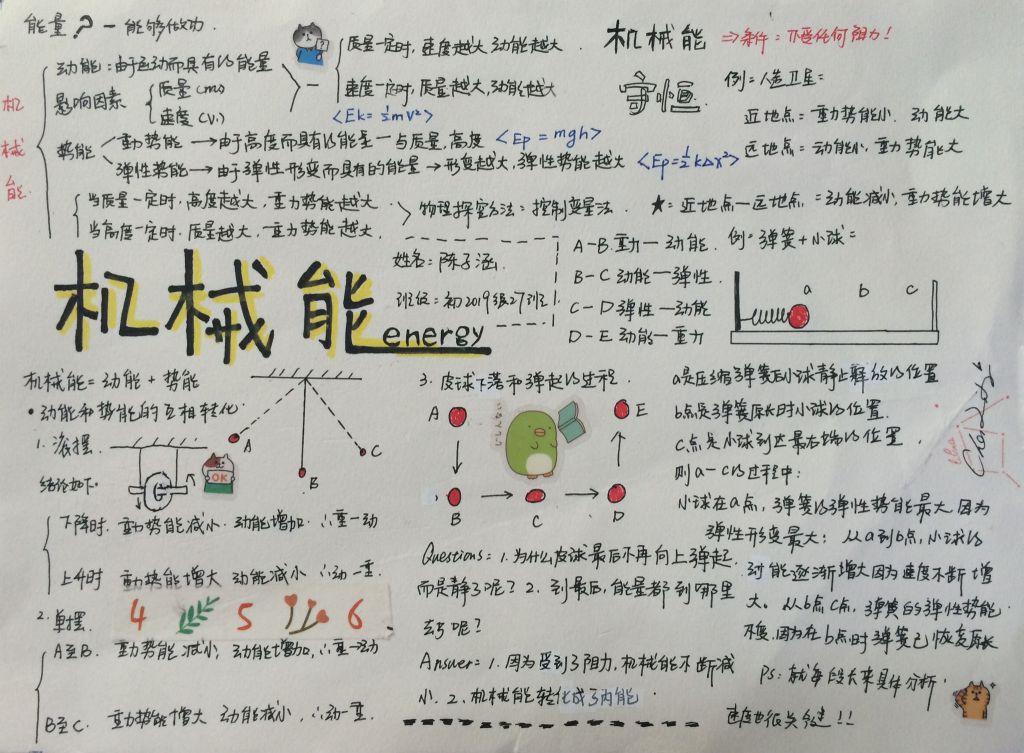 能量？一 能够做功．
机械能
动能：由于运动而具有的能量
影响因素
质量 (m)
速度 (v)
质量一定时，速度越大，动能越大．
速度一定时，质量越大，动能越大
<Ek=½mv²>
势能
重力势能 → 由于高度而具有的能量 — 与质量，高度 <Ep=mgh>
弹性势能 → 由于弹性形变而具有的能量 → 形变越大，弹性势能越大 <Ep=½kΔx²>
当质量一定时，高度越大，重力势能越大．
当高度一定时．质量越大，重力势能越大．
物理探究方法：控制变量法．
机械能 ⇒条件：不受任何阻力！
守恒
例：人造卫星：
近地点：重力势能小．动能大
远地点：动能小，重力势能大
★：近地点—远地点：动能减小，重力势能增大
机械能
energy
姓名：陈子涵
班级：初2019级27班
A-B 重力—动能．
B-C 动能—弹性．
C-D 弹性—动能
D-E 动能—重力
例：弹簧+小球：
a b c
机械能=动能+势能
•动能和势能的互相转化．
1. 滚摆．
结论如下：
OK
A
B
C
下降时．重力势能减小．动能增加．∴重—动
上升时 重力势能增大 动能减小 ∴动—重．
2. 单摆．
4 5 6
A至B．重力势能减小，动能增加，∴重—动
B至C．重力势能增大 动能减小，∴动—重．
3. 皮球下落和弹起的过程．
A E
B C D
Questions：1. 为什么皮球最后不再向上弹起．
而是静了呢？2. 到最后，能量都到哪里
去了呢？
Answer：1. 因为受到了阻力，机械能不断减
小．2. 机械能转化成了内能．
a是压缩弹簧后小球静止释放的位置
b点是弹簧原长时小球的位置．
c点是小球到达最右端的位置．
则a-c的过程中：
小球在a点，弹簧的弹性势能最大因为
弹性形变最大；从a到b点，小球的
动能逐渐增大因为速度不断增
大．从b点c点，弹簧的弹性势能
不变，因为在b点时弹簧已恢复原长
Ps：就每段大来具体分析．
速度也很关键！！